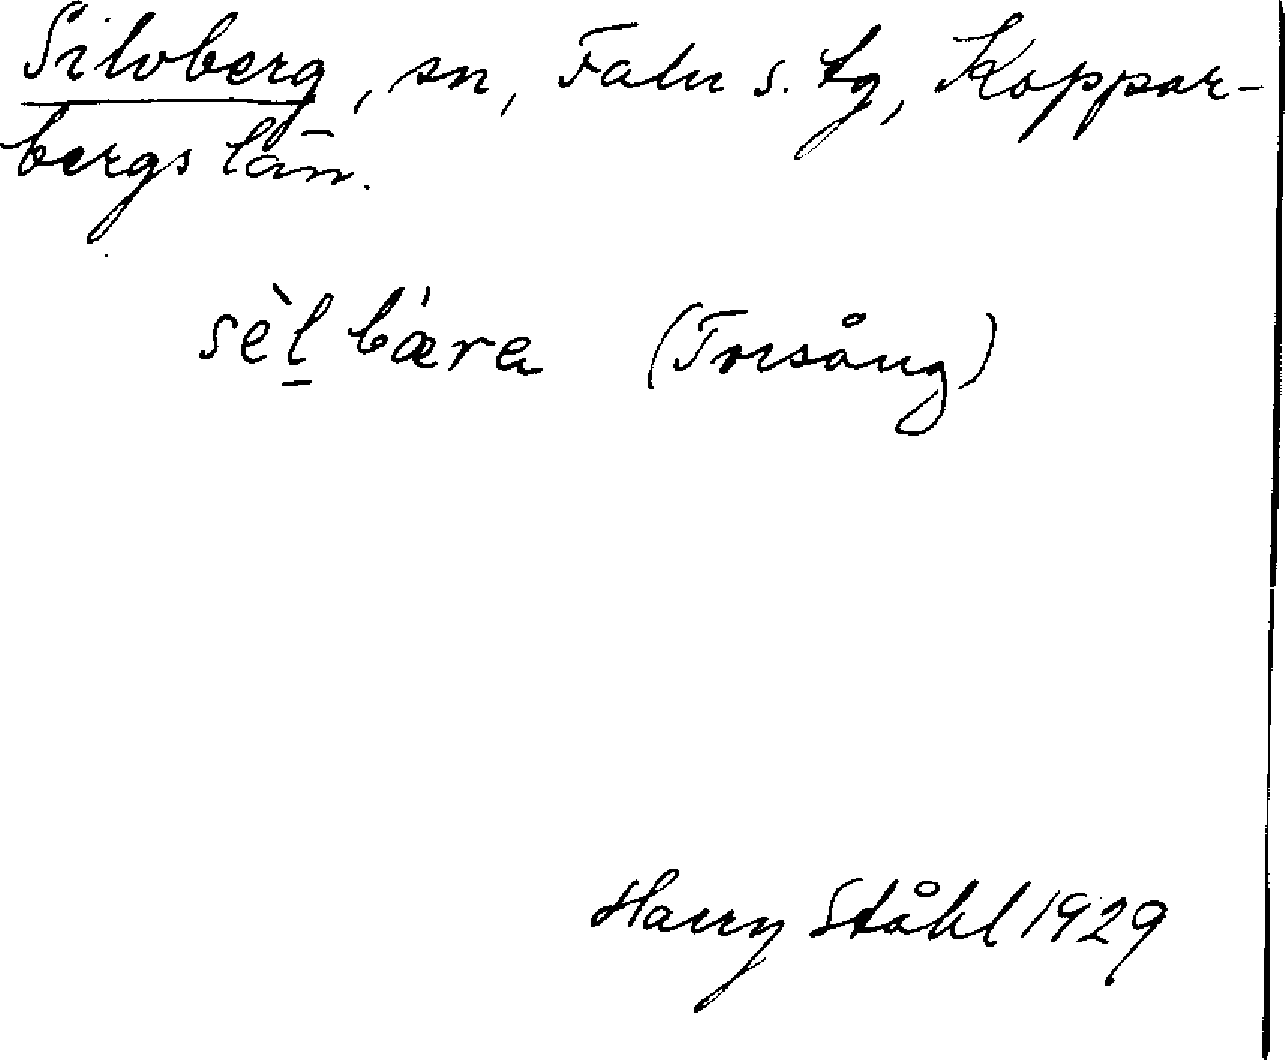 Silvberg, sn, Falu s. tg, Koppar-
bergs län.
sè̀l̠ bæ̀ra (Torsång)
Harry Ståhl 1929